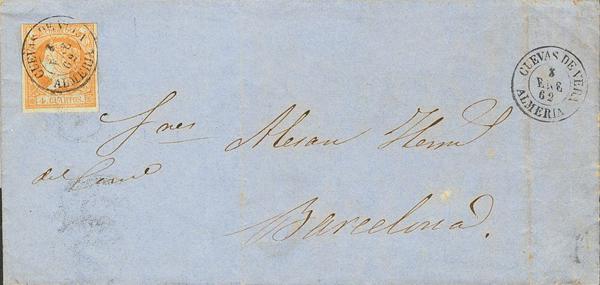 CUEVAS DE VERA
3
ENE
62
ALMERIA
4 CUARTOS
CUEVAS DE VERA
3
ENE
62
ALMERIA
Sres
del Comº
Barcelona.